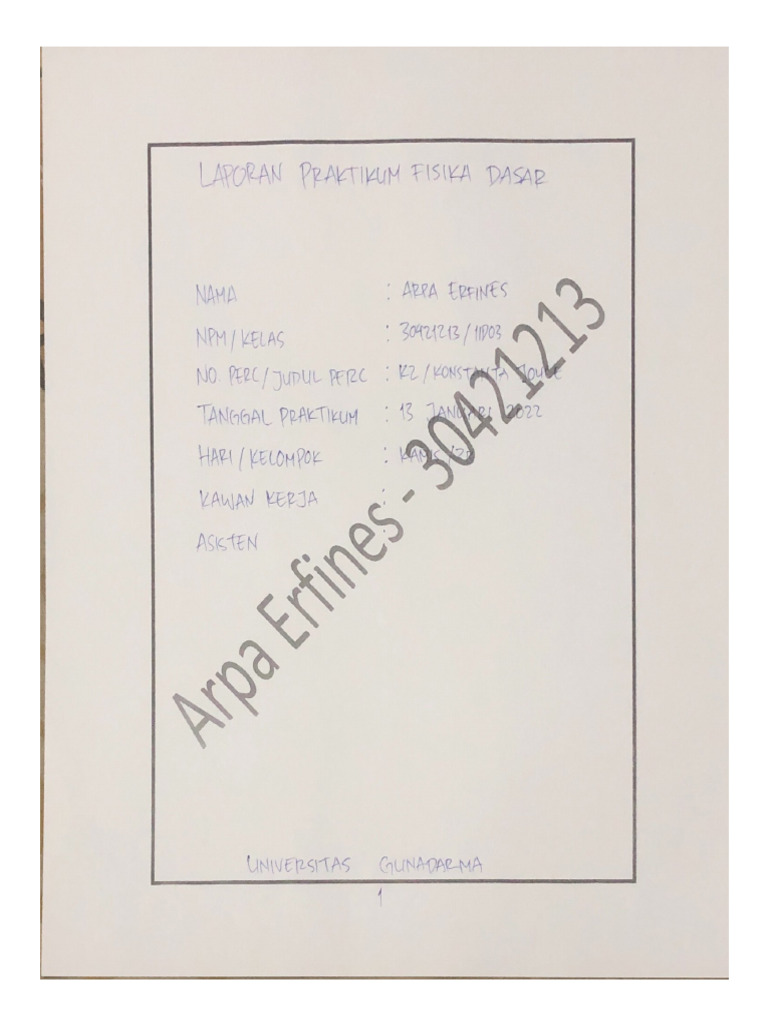 LAPORAN PRAKTIKUM FISIKA DASAR
NAMA : ARPA ERFINES
NPM/KELAS : 30421213/11D03
NO. PERC/JUDUL PERC : K2/KONSTANTA JOULE
TANGGAL PRAKTIKUM : 13 JANUARI 2022
HARI/KELOMPOK : KAMIS
KAWAN KERJA :
ASISTEN :
Arpa Erfines - 30421213
UNIVERSITAS GUNADARMA
1